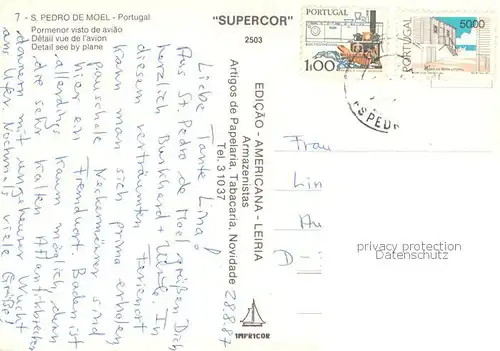 7 - S. PEDRO DE MOEL - Portugal
Pormenor visto de avião
Détail vue de l'avion
Detail see by plane
"SUPERCOR"
2503
PORTUGAL
1$00
PORTUGAL
5000
SPED
EDIÇÃO - AMERICANA - LEIRIA
Armazenistas
Artigos de Papelaria, Tabacaria, Novidade
Tel. 31037
IMPRICOR
28.8.87
Liebe Tante Lina!
Aus St. Pedro de Moel grüßen Dich
herzlich Burkhard + Ursula. In
diesem verträumten Ferienort
kann man sich prima erholen
pauschale Neckermänner sind
hier ein Fremdwort. Baden ist
allerdings kaum möglich, denn
die sehr kalten Atlantikbrecher
donnern mit ungeheurer Wucht
ans Ufer. Nochmals viele Grüße!
Frau
Lin
Au
D-
privacy protection
Datenschutz